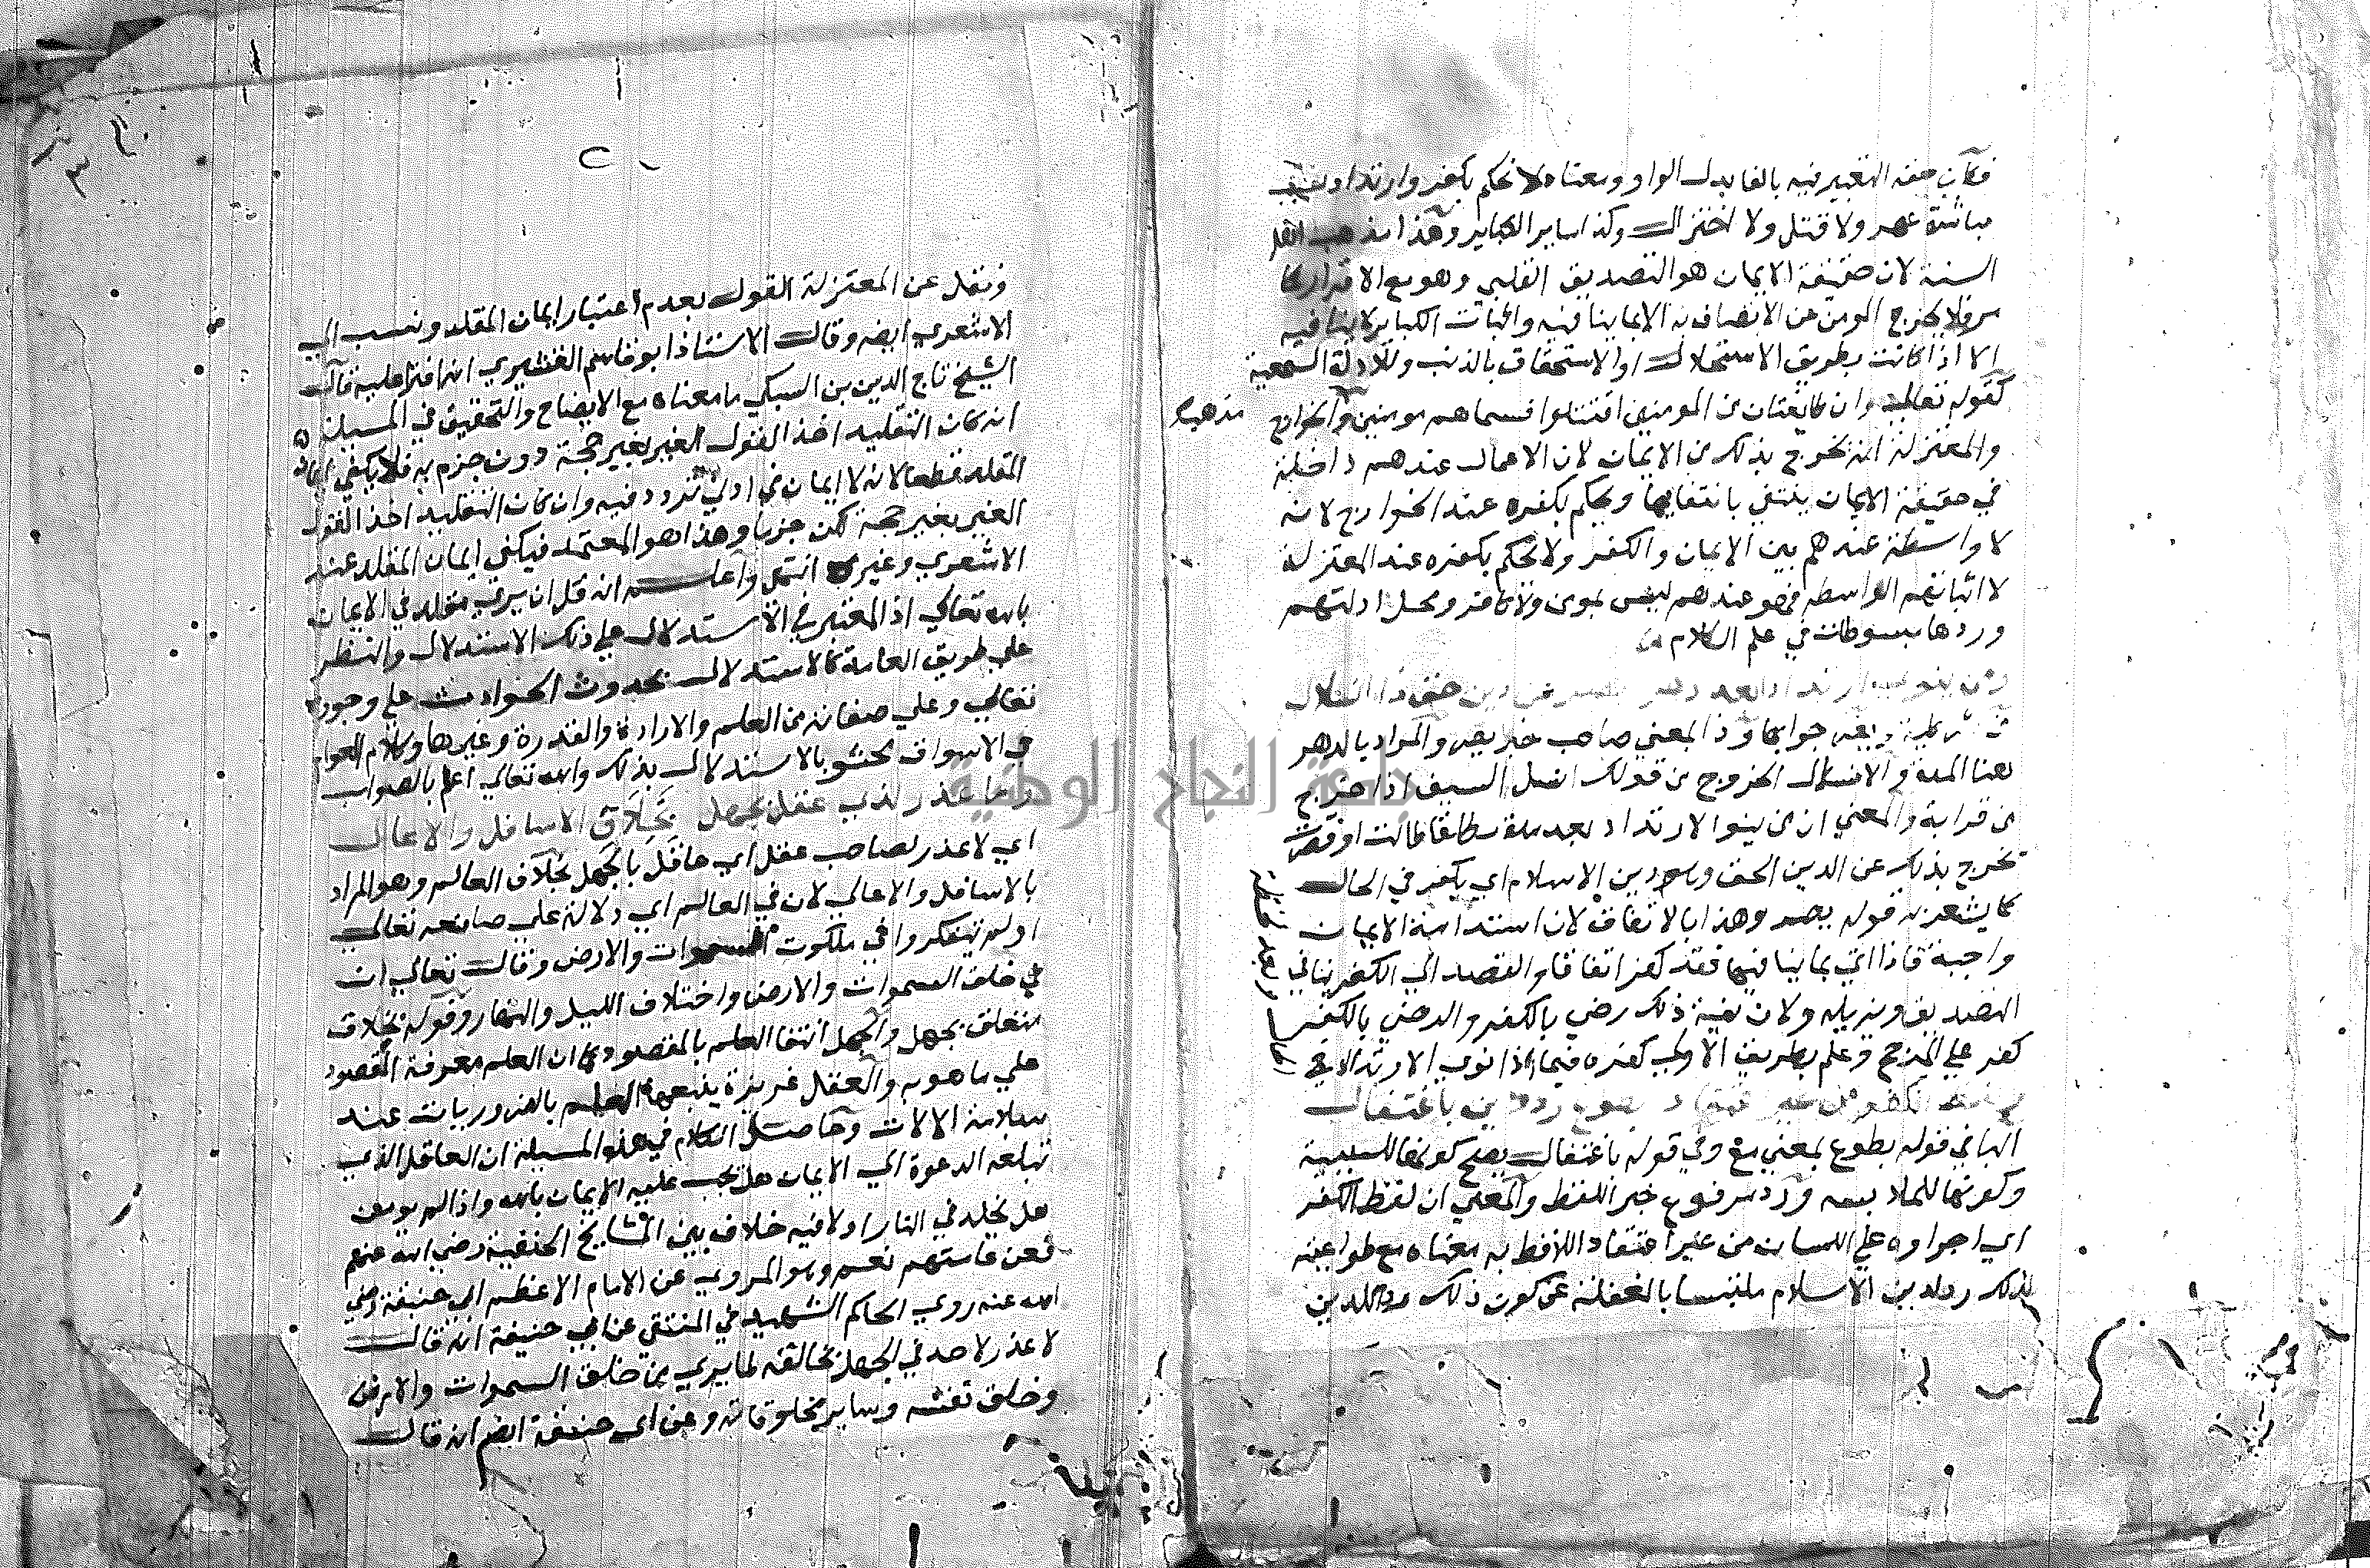 فكان حقه التعبير فيه بالفا بدل الواو ومعناه لا نحكم بكفر وارتداد بسبب
مباشرة عهر ولا قتل ولا اختزال وكذا ساير الكباير وهذا مذهب اهل
السنة لان حقيقة الايمان هو التصديق القلبي وهو مع الاقرار كما
مر فلا يخرج المومن عن الاتصاف به الا بما ينافيه واثبات الكباير لا ينافيه
الا اذا كانت بطريق الاستحلال او الاستحقاق بالذنب وللادلة السمعية
كقوله تعالى وان طايفتان من المومنين اقتتلوا فسماهم مومنين والخوارج
مذهب
والمعتزلة انه يخرج بذلك من الايمان لان الاعمال عندهم داخلة
في حقيقة الايمان ينتفي بانتفايها ويحكم بكفره عند الخوارج لانه
لا واسطة عندهم بين الايمان والكفر ولا نحكم بكفره عند المعتزلة
لاثباتهم الواسطة فهو عندهم ليس بمومن ولا كافر ومحل ادلتهم
وردها مبسوطات في علم الكلام
ومن ينو ارتدادا بعد دهر يصر عن دين حق ذا انسلال
من شرطية ويصر جوابها وذا بمعني صاحب خبر يصر والمراد بالدهر
هنا المدة والانسلال الخروج من قولك انسل السيف اذا خرج
من قرابه والمعني ان من ينوا الارتداد بعد مدة مطلقا طالت او قصرت
يخرج بذلك عن الدين الحق وهو دين الاسلام اي يكفر في الحال
كما يشعر به قوله يصر وهذا بالاتفاق لان استدامة الايمان
واجبة فاذا اتي بما ينافيها فقد كفر اتفاقا والقصد الي الكفر ينافي
التصديق ويزيله ولان نية ذلك رضي بالكفر والرضي بالكفر
كفر علي المرجح وعلم بطريق الاولي كفره فيما اذا نوي الارتداد في
ولفظ الكفر من غير اعتقاد بطوع رد دين باغتفال
البا في قوله بطوع بمعني مع وفي قوله باغتفال يصح كونها للسببية
وكونها للملابسه ورد مرفوع خبر اللفظ والمعني ان لفظ الكفر
اي اجراوه علي اللسان من غير اعتقاد اللافظ به معناه مع طواعيته
لذلك رد لدين الاسلام ملتبسا بالغفلة عن كون ذلك ردا للدين
٢
ونقل عن المعتزلة القول بعدم اعتبار ايمان المقلد ونسب الي
الاشعري ايضه وقال الاستاذ ابو قاسم القشيري انه افترا عليه قال
الشيخ تاج الدين بن السبكي ما معناه مع الايضاح والتحقيق في المسيلة
انه كان التقليد اخذ القول الغير بغير حجة دون جزم به فلا يكفي ايمان
المقلد قطعا لانه لا ايمان في ادني تردد فيه وان كان التقليد اخذ القول
الغير بغير حجة لكن جزما وهذا هو المعتمد فيكفي ايمان المقلد عند
الاشعري وغيره انتهي واعلم انه قل ان يري مقلد في الايمان
بالله تعالي اذ المعتبر في الاستدلال علي ذلك الاستدلال والنظر
علي طريق العامة كالاستدلال بحدوث الحوادث علي وجوده
تعالي وعلي صفاته من العلم والارادة والقدرة وغيرها وكلام العوام
في الاسواق محشو بالاستدلال بذلك والله تعالي اعلم بالصواب
وما عذر لذي عقل بجهل بخلاق الاسافل والاعال
اي لا عذر لصاحب عقل اي عاقل بالجهل بخلاق العالم وهو المراد
بالاسافل والاعالي لان في العالم اي دلالة علي صانعه تعالي
اولم يتفكروا في ملكوت السموات والارض وقال تعالي ان
في خلق السموات والارض واختلاف الليل والنهار وقوله بخلاق
متعلق بجهل والجهل انتفا العلم بالمقصود كما ان العلم معرفة المقصود
علي ما هو به والعقل غريزة يتبعها العلم بالضروريات عند
سلامة الالات وحاصل الكلام في هذه المسيلة ان العاقل الذي
تبلغه الدعوة الي الايمان هل يجب عليه الايمان بالله واذا لم يومن
هل يخلد في النار اولا فيه خلاف بين المشايخ الحنفية رضي الله عنهم
فعن عامتهم نعم وهو المروي عن الامام الاعظم ابي حنيفة رضي
الله عنه روي الحاكم الشهيد في المنتقي عن ابي حنيفة انه قال
لا عذر لاحد في الجهل بخالقه لما يري من خلق السموات والارض
وخلق نفسه وساير مخلوقاته وعن ابي حنيفة ايضه انه قال
جامعة النجاح الوطنية